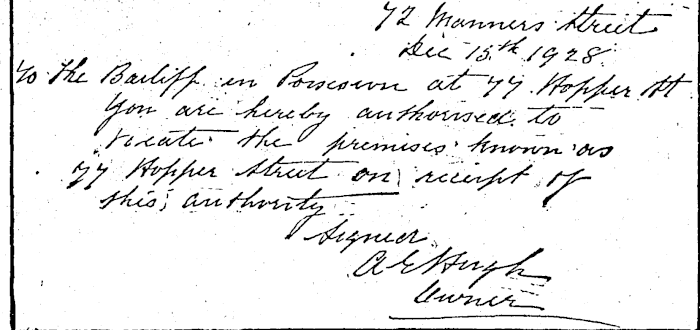 72 Manners Street
Dec 15th 1928
To the Bailiff in Possession at 77 Hopper St
You are hereby authorised to
vacate the premises known as
77 Hopper Street on receipt of
this authority
Signed
A E Hugh
Owner